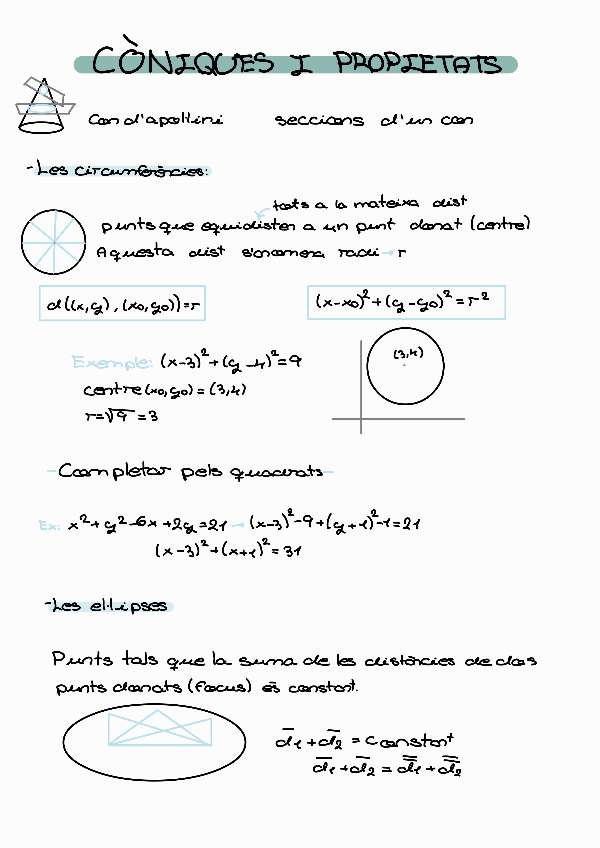 CÒNIQUES I PROPIETATS
Con d'apol·lini seccions d'un con
-Les circumferències:
tots a la mateixa dist
punts que equidisten a un punt donat (centre)
Aquesta dist s'anomena radi → r
d((x,y),(x0,y0))=r (x-x0)²+(y-y0)²=r²
Exemple: (x-3)²+(y-4)²=9
(3,4)
centre (x0,y0)=(3,4)
r=√9=3
-Completar pels quadrats-
Ex: x²+y²-6x+2y=21 → (x-3)²-9+(y+1)²-1=21
(x-3)²+(x+1)²=31
-Les el·lipses
Punts tals que la suma de les distàncies de dos
punts donats (focus) és constant.
d̅1+d̅2 = constant
d̅1+d̅2 = d̿1+d̿2